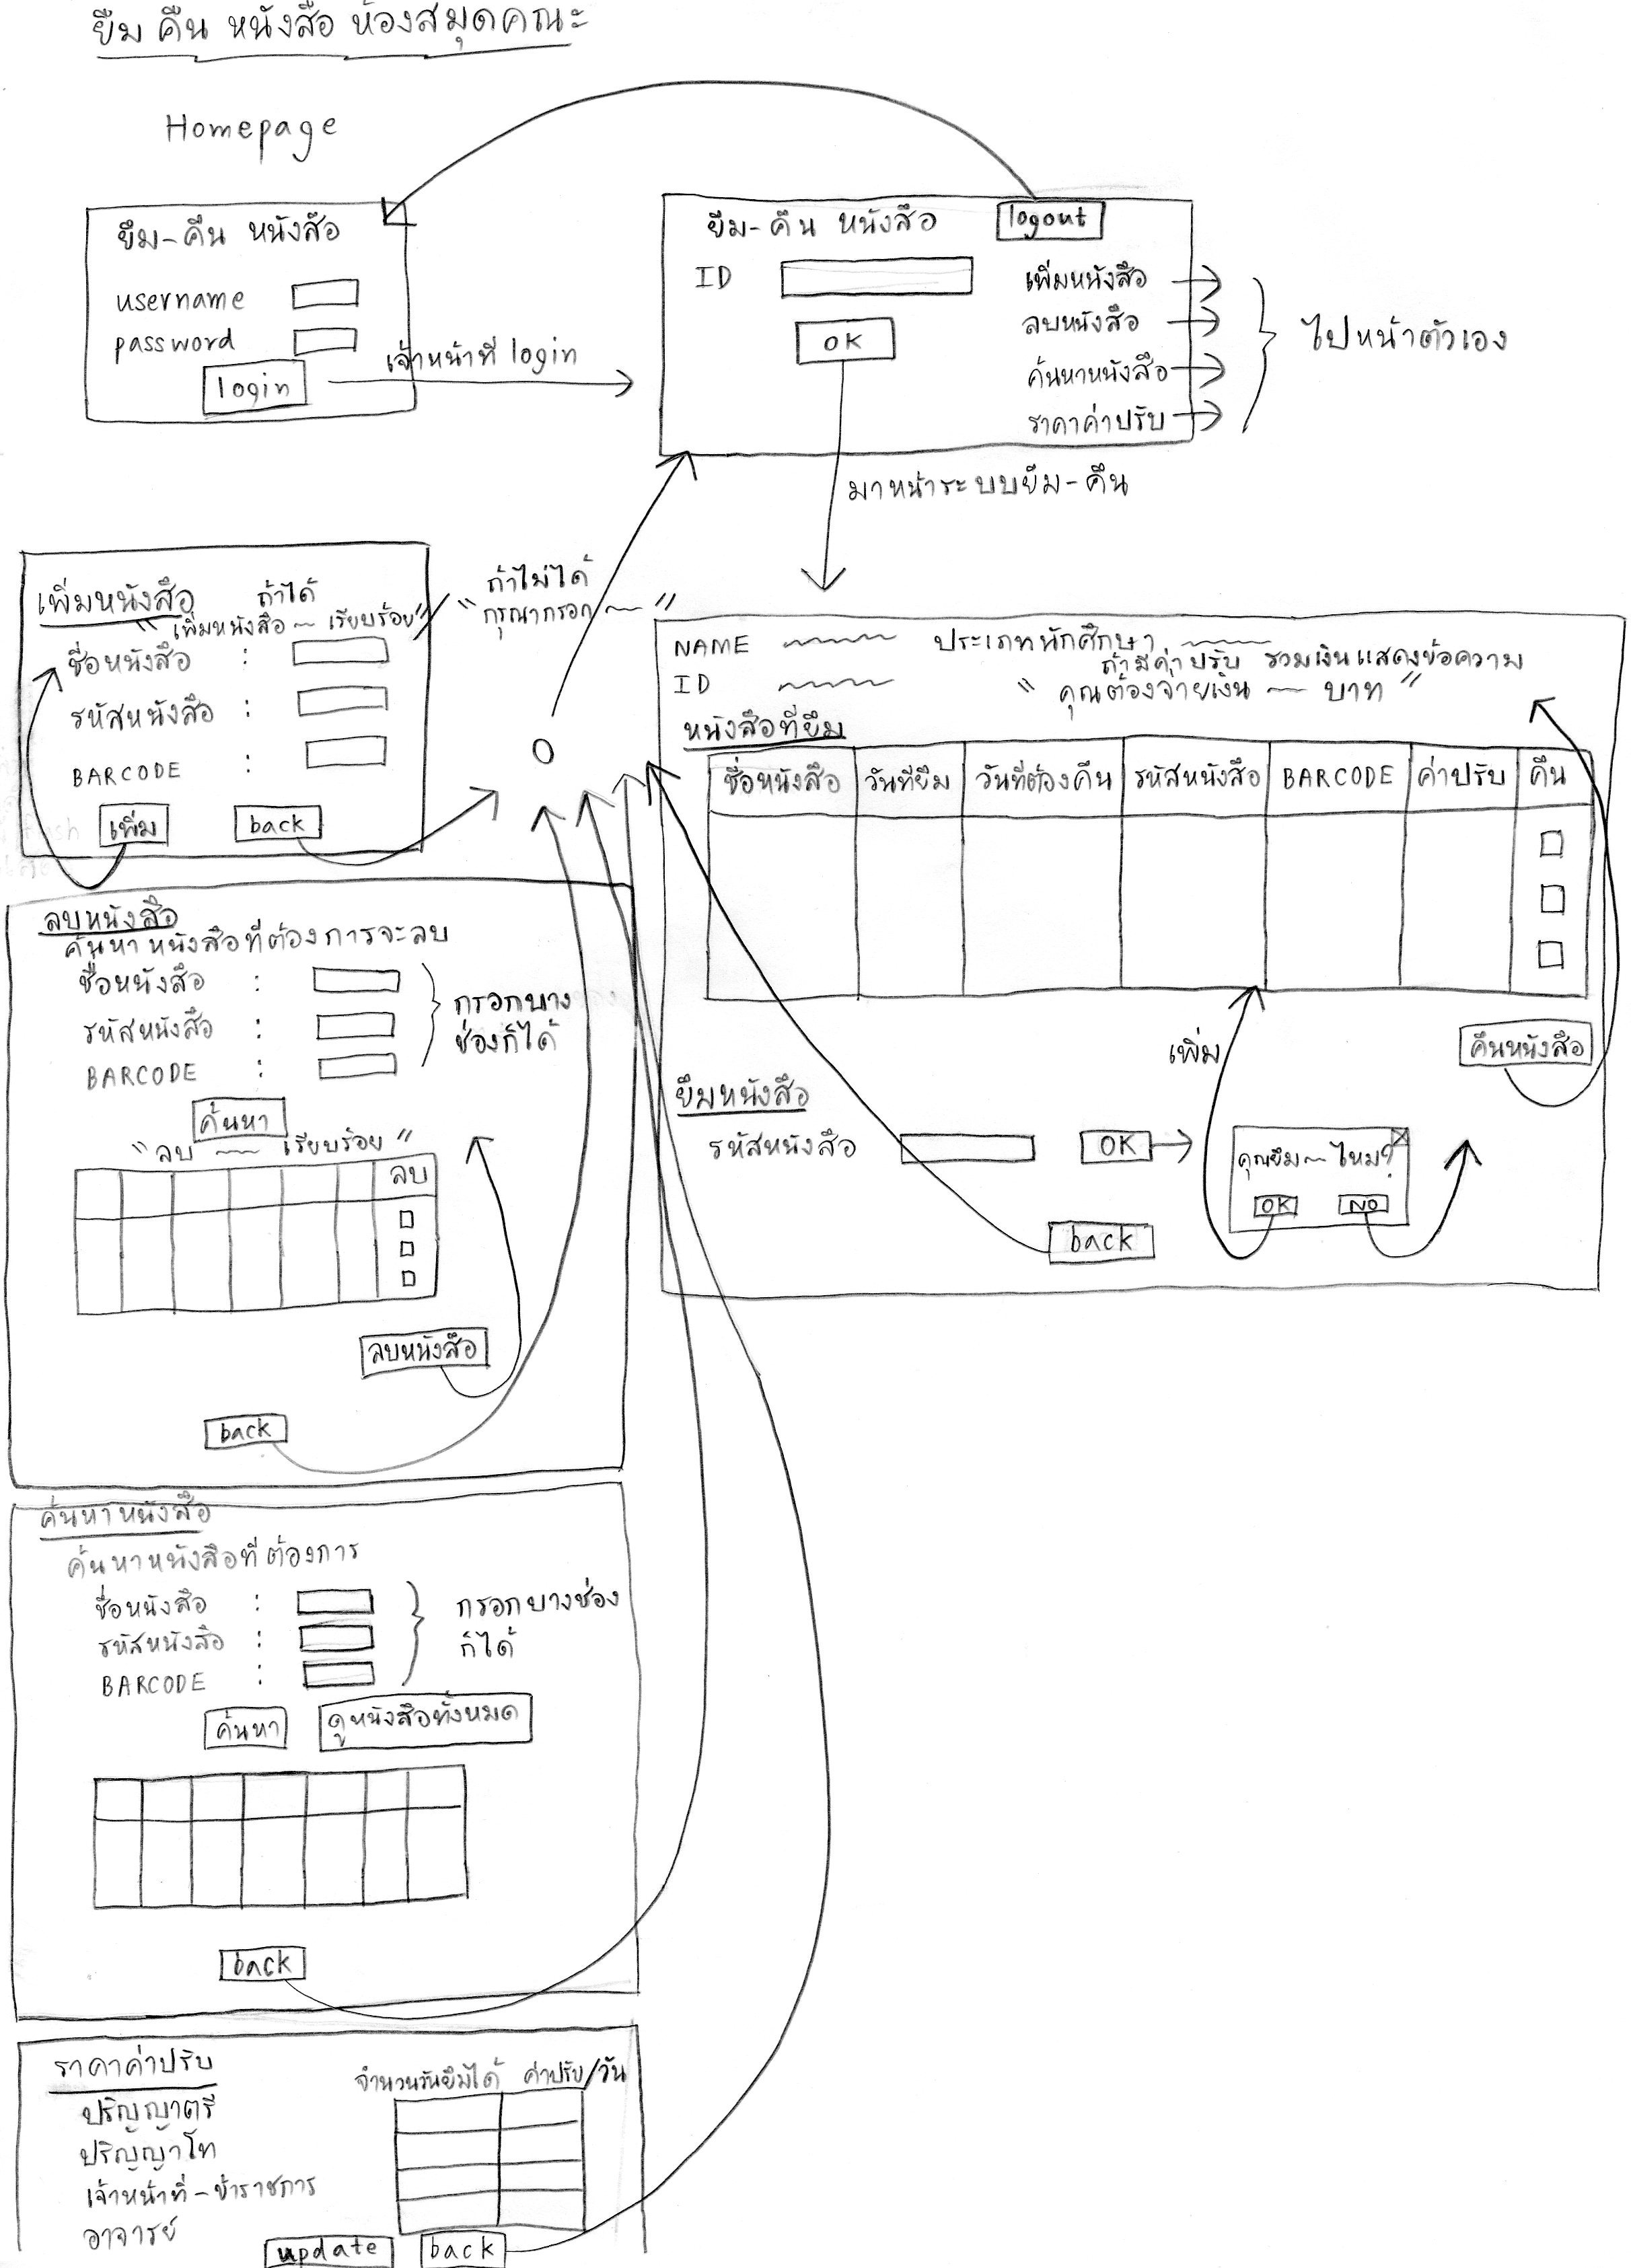 ยืม คืน หนังสือ ห้องสมุดคณะ
Homepage
ยืม-คืน หนังสือ
username
password
login
เจ้าหน้าที่ login
ยืม-คืน หนังสือ
logout
ID
OK
เพิ่มหนังสือ
ลบหนังสือ
ค้นหาหนังสือ
ราคาค่าปรับ
ไปหน้าตัวเอง
มาหน้าระบบยืม-คืน
เพิ่มหนังสือ
ถ้าได้
"เพิ่มหนังสือ ~ เรียบร้อย"
ถ้าไม่ได้
"กรุณากรอก ~"
ชื่อหนังสือ :
รหัสหนังสือ :
BARCODE :
เพิ่ม
back
NAME
ประเภทนักศึกษา
ถ้ามีค่าปรับ รวมเงินแสดงข้อความ
ID
"คุณต้องจ่ายเงิน ~ บาท"
หนังสือที่ยืม
ชื่อหนังสือ วันที่ยืม วันที่ต้องคืน รหัสหนังสือ BARCODE ค่าปรับ คืน
คืนหนังสือ
เพิ่ม
ยืมหนังสือ
รหัสหนังสือ
OK
คุณยืม ~ ไหม?
OK NO
back
ลบหนังสือ
ค้นหาหนังสือที่ต้องการจะลบ
ชื่อหนังสือ :
รหัสหนังสือ :
BARCODE :
กรอกบาง
ช่องก็ได้
ค้นหา
"ลบ ~ เรียบร้อย"
ลบ
ลบหนังสือ
back
ค้นหาหนังสือ
ค้นหาหนังสือที่ต้องการ
ชื่อหนังสือ :
รหัสหนังสือ :
BARCODE :
กรอกบางช่อง
ก็ได้
ค้นหา
ดูหนังสือทั้งหมด
back
ราคาค่าปรับ
จำนวนวันยืมได้ ค่าปรับ/วัน
ปริญญาตรี
ปริญญาโท
เจ้าหน้าที่-ข้าราชการ
อาจารย์
update
back